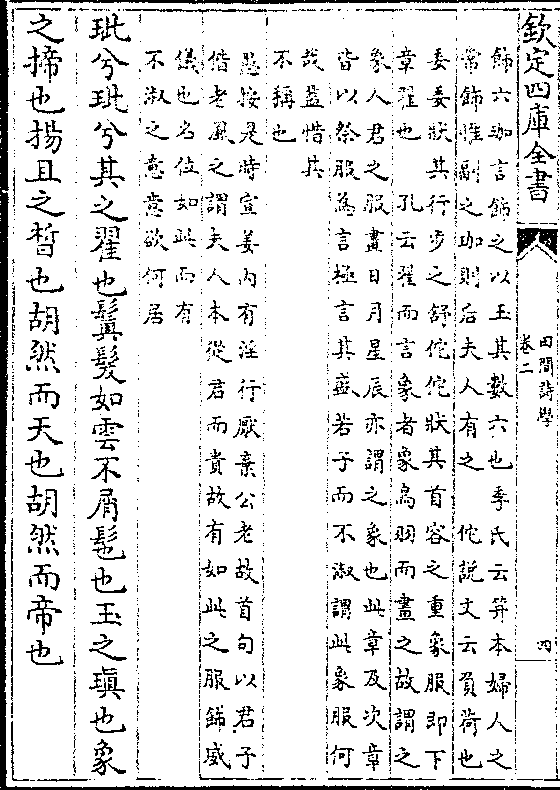 欽定四庫全書
田間詩學
卷二
四
飾六珈言飾之以玉其數六也季氏云笄本婦人之
常飾惟副之珈則后夫人有之　佗說文云負荷也
委委狀其行步之舒佗佗狀其首容之重象服即下
章翟也　孔云翟而言象者象鳥羽而畫之故謂之
象人君之服畫日月星辰亦謂之象也此章及次章
皆以祭服為言極言其盛若子而不淑謂此象服何
哉蓋惜其
不稱也
愚按是時宣姜内有淫行厭棄公老故首句以君子
偕老風之謂夫人本從君而貴故有如此之服飾威
儀也名位如此而有
不淑之意意欲何居
玼兮玼兮其之翟也鬒髮如雲不屑髢也玉之瑱也象
之揥也揚且之皙也胡然而天也胡然而帝也